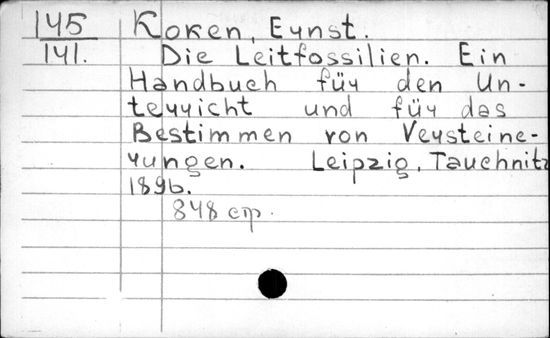 145
141.
Koken, Ernst.
Die Leitfossilien. Ein
Handbuch für den Un-
terricht und für das
Bestimmen von Versteine-
rungen. Leipzig, Tauchnitz
1896.
848 стр.